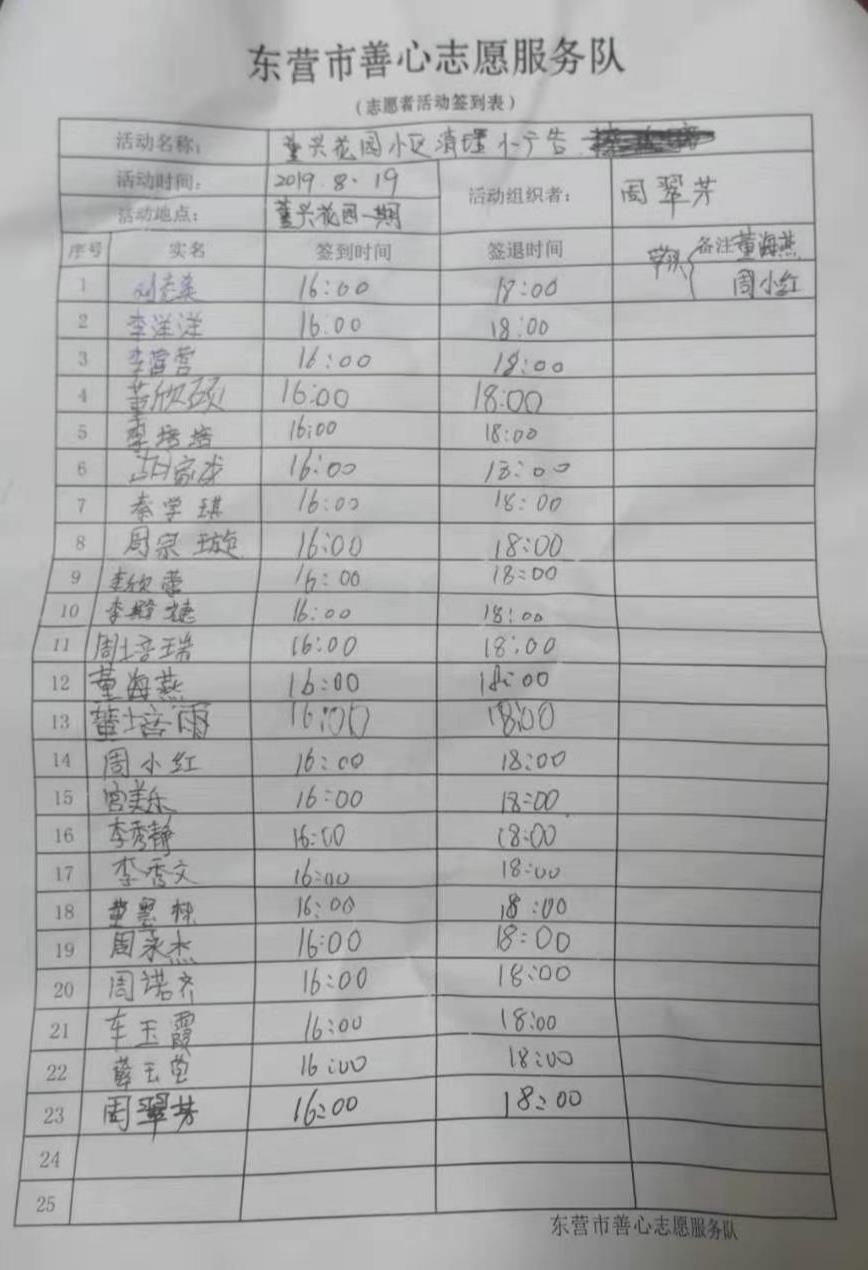 东营市善心志愿服务队
(志愿者活动签到表)
活动名称: 董兴花园小区清理小广告
活动时间: 2019.8.19 活动组织者: 周翠芳
活动地点: 董兴花园一期
序号 实名 签到时间 签退时间 备注 董海燕
1 16:00 18:00 周小红
2 李洋洋 16:00 18:00
3 李营营 16:00 18:00
4 董欣硕 16:00 18:00
5 李培培 16:00 18:00
6 16:00 18:00
7 秦学琪 16:00 18:00
8 周宗璇 16:00 18:00
9 李欣蕾 16:00 18:00
10 李 16:00 18:00
11 周培瑞 16:00 18:00
12 董海燕 16:00 18:00
13 董培雨 16:00 18:00
14 周小红 16:00 18:00
15 宫美乐 16:00 18:00
16 李秀静 16:00 18:00
17 李秀文 16:00 18:00
18 董 16:00 18:00
19 周永杰 16:00 18:00
20 周诺齐 16:00 18:00
21 车玉霞 16:00 18:00
22 薛玉 16:00 18:00
23 周翠芳 16:00 18:00
24
25
东营市善心志愿服务队